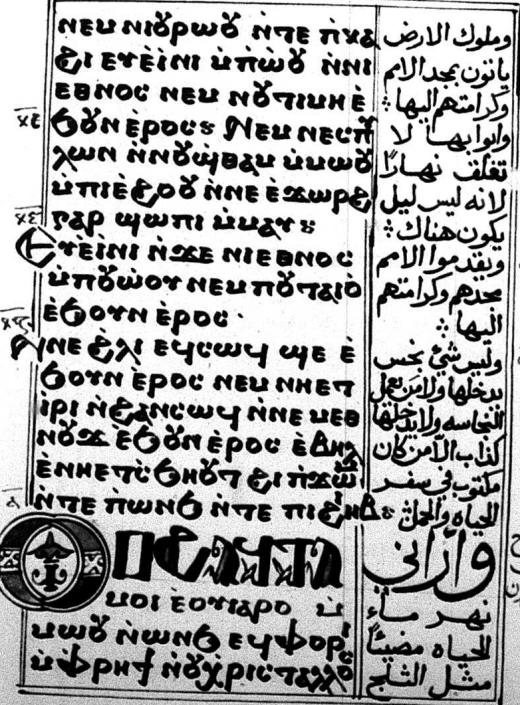 ⲛⲉⲙ ⲛⲓⲟⲩⲣⲱⲟⲩ ⲛ̀ⲧⲉ ⲡ̀ⲕⲁ
ϩⲓ ⲉⲩⲉ̀ⲓⲛⲓ ⲙ̀ⲡⲱ̀ⲟⲩ ⲛ̀ⲛⲓ
ⲉⲑⲛⲟⲥ ⲛⲉⲙ ⲛⲟⲩⲧⲓⲙⲏ ⲉ̀
ϧⲟⲩⲛ ⲉ̀ⲣⲟⲥ ⲛⲉⲙ ⲛⲉⲥⲡⲩ
ⲗⲱⲛ ⲛ̀ⲛⲟⲩϣⲑⲁⲙ ⲙ̀ⲙⲱⲟⲩ
ⲙ̀ⲡⲓⲉ̀ϩⲟⲟⲩ ⲛ̀ⲛⲉ ⲉ̀ϫⲱⲣϩ
ⲅⲁⲣ ϣⲱⲡⲓ ⲙ̀ⲙⲁⲩ
ⲉⲩⲉ̀ⲓⲛⲓ ⲛ̀ϫⲉ ⲛⲓⲉⲑⲛⲟⲥ
ⲙ̀ⲡⲟⲩⲱ̀ⲟⲩ ⲛⲉⲙ ⲡⲟⲩⲧⲁⲓⲟ̀
ⲉ̀ϧⲟⲩⲛ ⲉ̀ⲣⲟⲥ
ⲛ̀ⲛⲉ ϩ̀ⲗⲓ ⲉϥⲥⲱϥ ϣⲉ ⲉ̀
ϧⲟⲩⲛ ⲉ̀ⲣⲟⲥ ⲛⲉⲙ ⲛⲏⲉⲧ
ⲓ̀ⲣⲓ ⲛ̀ϩⲁⲛⲥⲱϥ ⲛ̀ⲛⲉ ⲙⲉⲑ
ⲛⲟⲩϫ ⲉ̀ϧⲟⲩⲛ ⲉ̀ⲣⲟⲥ ⲉ̀ⲃⲏⲗ
ⲉ̀ⲛⲏⲉⲧⲥ̀ϧⲏⲟⲩⲧ ϩⲓ ⲡ̀ϫⲱⲙ
ⲛ̀ⲧⲉ ⲡ̀ⲱⲛϧ ⲛ̀ⲧⲉ ⲡⲓϩⲓⲏⲃ
ⲟⲩⲟϩ ⲁϥⲧⲁ
ⲙⲟⲓ ⲉ̀ⲟⲩⲓⲁⲣⲟ ⲙ̀
ⲙⲱⲟⲩ ⲛ̀ⲱⲛϧ ⲉϥⲫⲟⲣⲓ
ⲙ̀ⲫⲣⲏϯ ⲛ̀ⲟⲩⲭⲣⲓⲥⲧⲁⲗⲗⲟ
وملوك الارض
ياتون بمجد الامم
وكرامتهم اليها
وابوابها لا
تغلق نهاراً
لانه ليس ليل
يكون هناك
ويقدموا الامم
مجدهم وكرامتهم
اليها
وليس شئ نجس
يدخلها ولا من يعمل
النجاسه ولا يدخلها
كذاب الا من كان
مكتوب في سفر
الحياه والحمل
وأراني
نهر ماء
الحياه مضيئاً
مثل الثلج